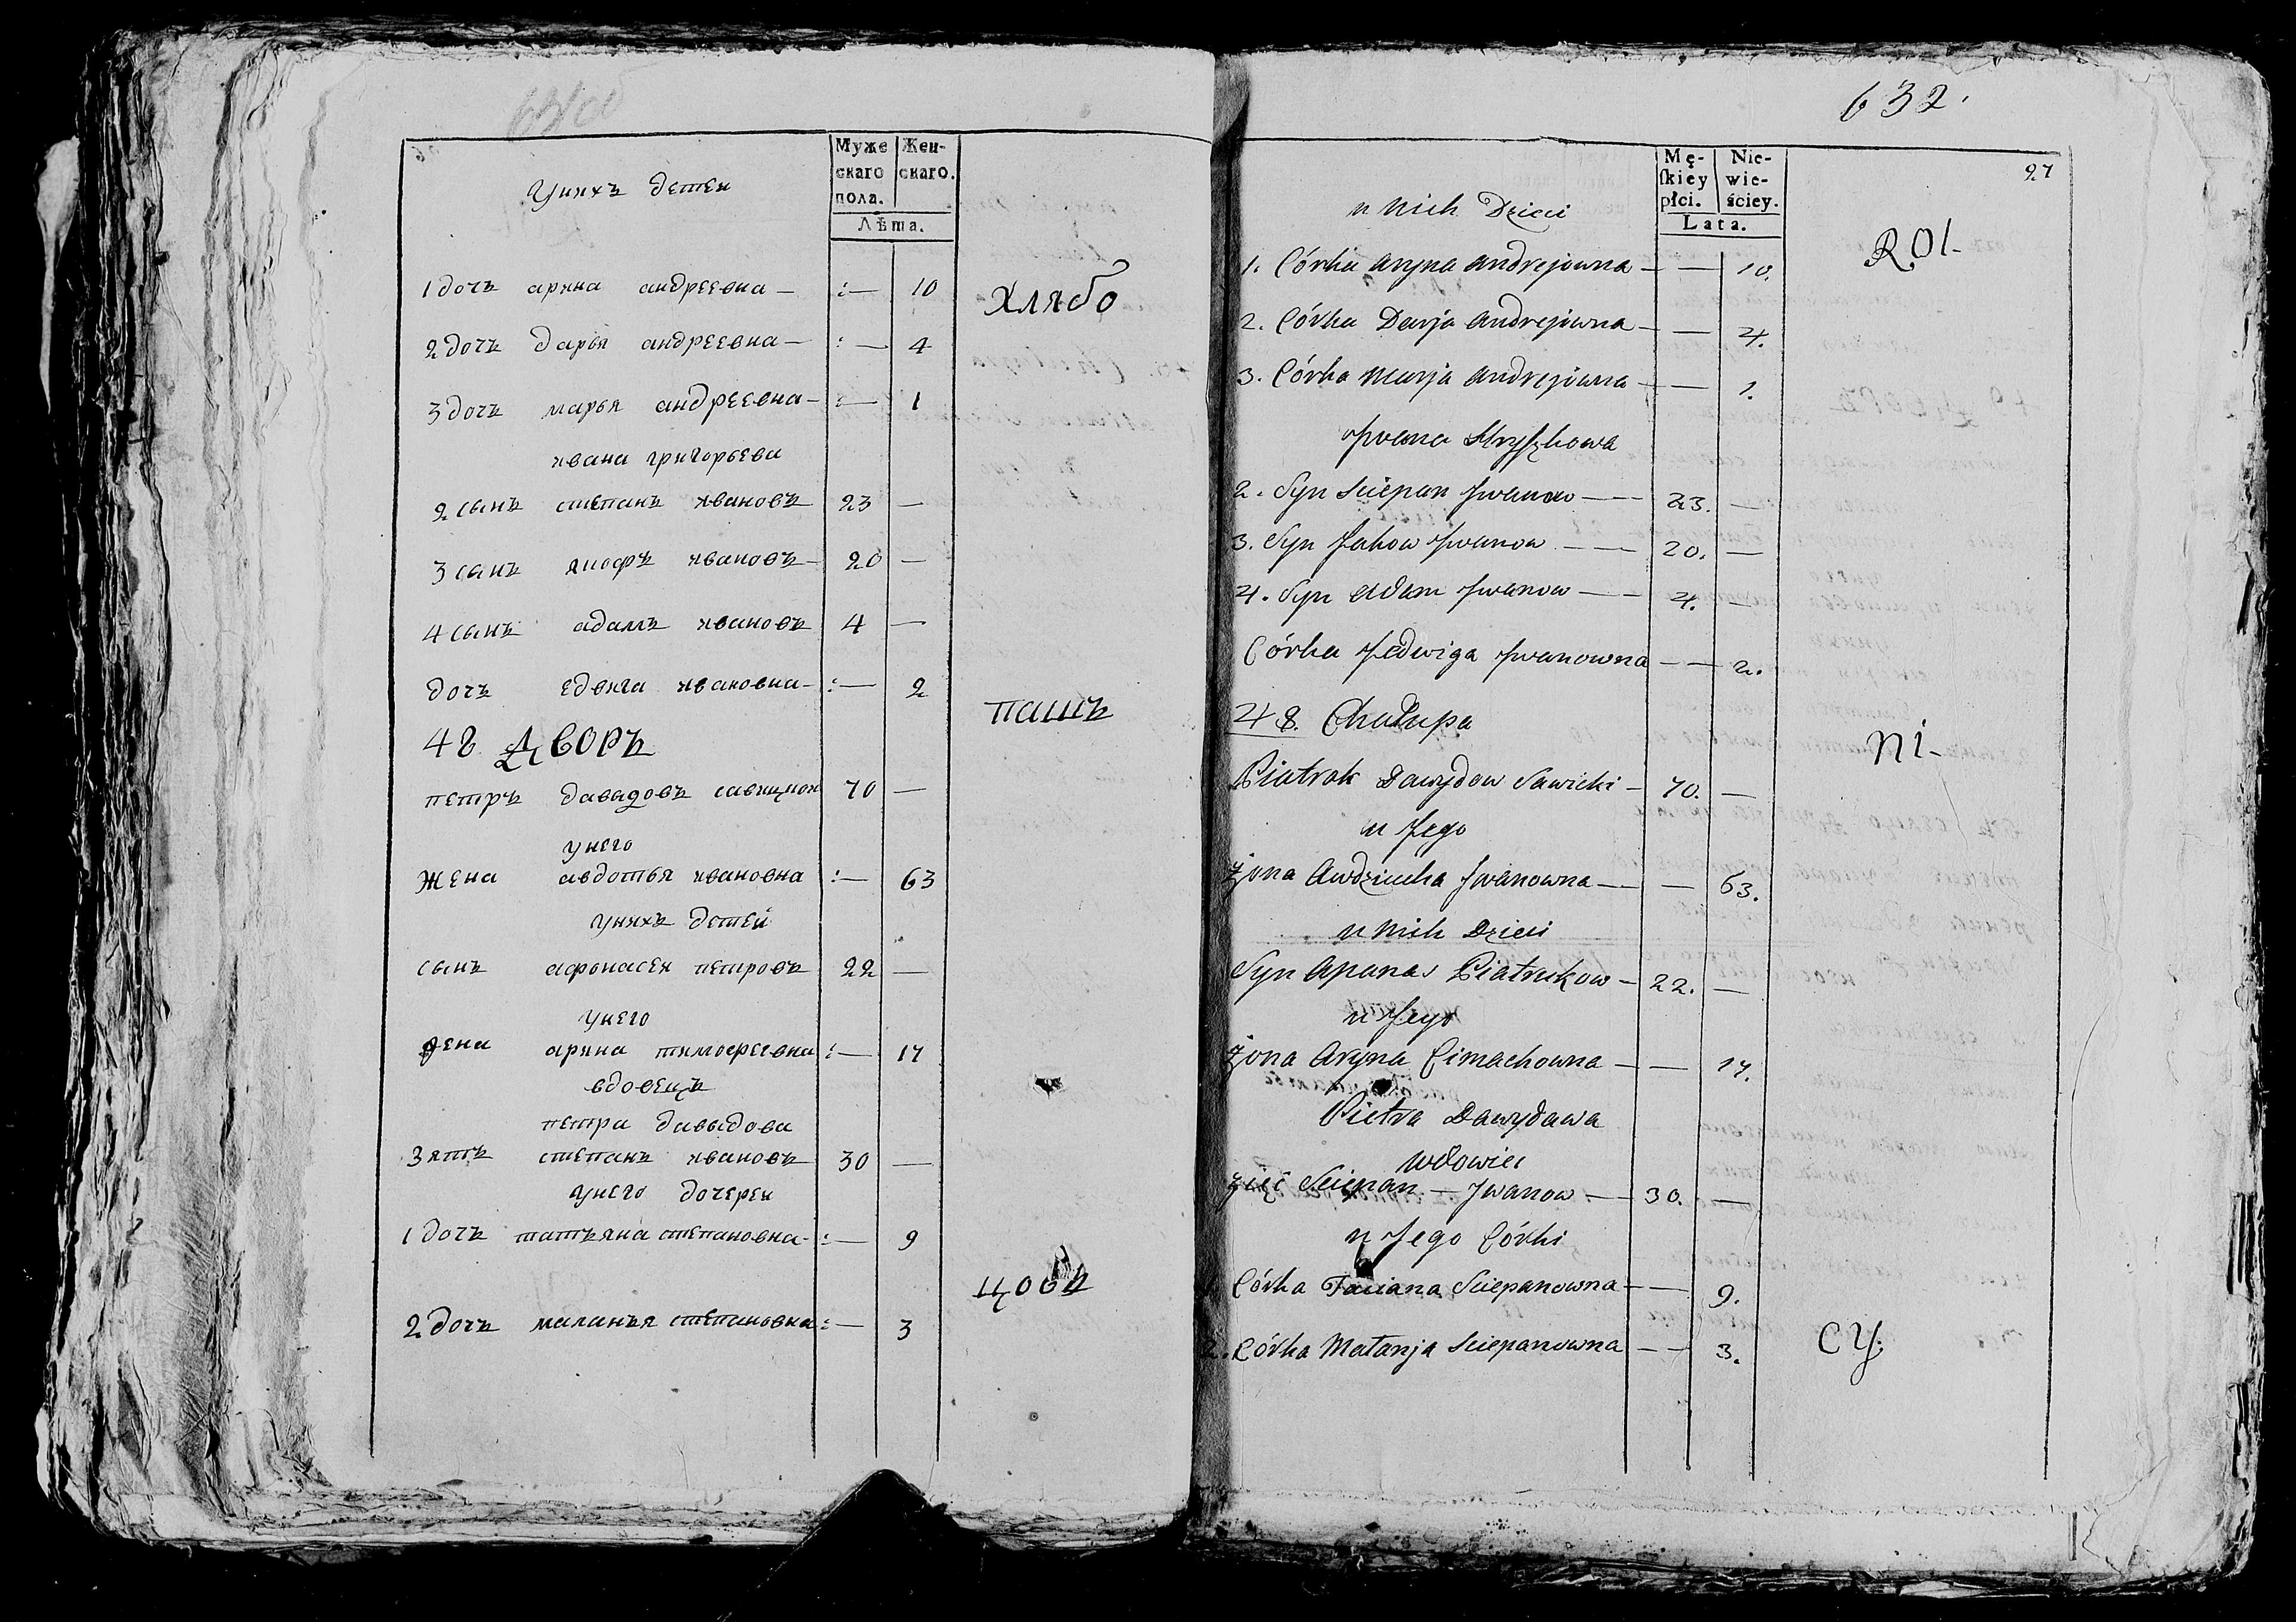 Муже
скаго
пола.
Жен-
скаго.
Лѣта.
унихъ детеи
1 дочь арина андреевна — :— 10
хлябо
2 дочь дарья андреевна — :— 4
3 дочь марья андреевна — :— 1
ивана григорьева
2 сынъ степанъ ивановъ 23 —
3 сынъ ивановъ — 20 —
4 сынъ адамъ ивановъ 4 —
дочь едвига ивановна — :— 2
пашъ
48 Дворъ
петръ давыдовъ 70 —
унего
жена авдотья ивановна :— 63
унихъ детей
сынъ афонасеи петровъ 22 —
унего
жена арина тимофеевна :— 17
вдовецъ
петра давыдова
зять степанъ ивановъ 30 —
унего дочереи
1 дочь татьяна степановна — :— 9
цовъ
2 дочь маланья степановна :— 3
632.
27
Mę-
ſkiey
płci.
Nie-
wie-
ściey.
Lata.
u Nich Dzieci
ROl-
1. Córka Aryna Andrejowna — — 10.
2. Córka Darja Andrejowna — — 4.
3. Córka Marja Andrejowna — — 1.
Iwana Hryſzkowa
2. Syn Sciepan Iwanow — 23. —
3. Syn Jakow Iwanow — 20. —
4. Syn Adam Iwanow — 4. —
Córka Jedwiga Iwanowna — — 2.
48. Chałupa
NI-
Piatrok Dawydow Sawicki — 70. —
u Jego
Żona Awdziucha Iwanowna — — 63.
u Nich Dzieci
Syn Apanas Piatrukow — 22. —
u Jego
Żona Aryna Cimachowna — — 17.
Pietra Dawydawa
Wdowiec
Zięć Sciepan — Iwanow — 30. —
u Jego Córki
Córka Taciana Sciepanowna — — 9.
2. Córka Małanja Sciepanowna — — 3.
CY.